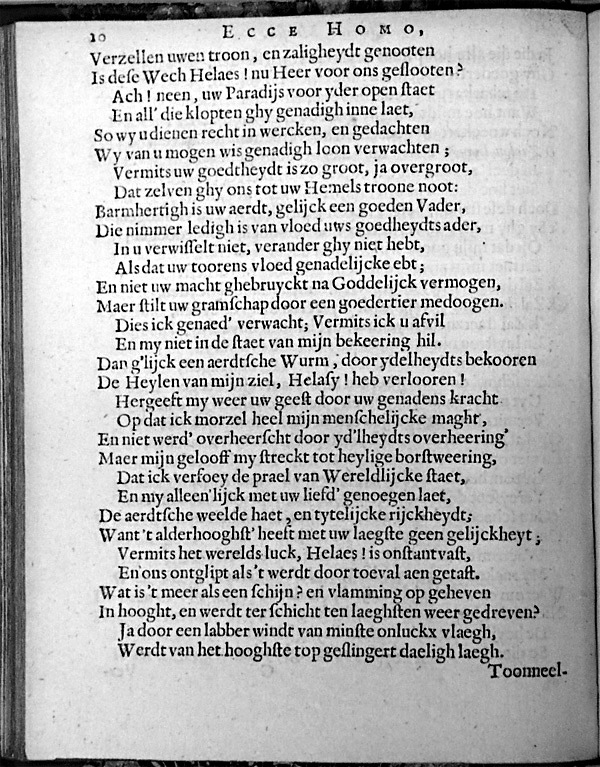 10 ECCE HOMO,
Verzellen uwen troon, en zaligheydt genooten
Is dese Wech Helaes! nu Heer voor ons geslooten?
Ach! neen, uw Paradijs voor yder open staet
En all' die klopten ghy genadigh inne laet,
So wy u dienen recht in wercken, en gedachten
Wy van u mogen wis genadigh loon verwachten;
Vermits uw goedtheydt is zo groot, ja overgroot,
Dat zelven ghy ons tot uw Hemels troone noot:
Barmhertigh is uw aerdt, gelijck een goeden Vader,
Die nimmer ledigh is van vloed uws goedheydts ader,
In u verwisselt niet, verander ghy niet hebt,
Als dat uw toorens vloed genadelijcke ebt;
En niet uw macht ghebruyckt na Goddelijck vermogen,
Maer stilt uw gramschap door een goedertier medoogen.
Dies ick genaed' verwacht; Vermits ick u afvil
En my niet in de staet van mijn bekeering hil.
Dan g'lijck een aerdtsche Wurm, door ydelheydts bekooren
De Heylen van mijn ziel, Helasy! heb verlooren!
Hergeeft my weer uw geest door uw genadens kracht
Op dat ick morzel heel mijn menschelijcke maght,
En niet werd' overheerscht door yd'lheydts overheering'
Maer mijn gelooff my streckt tot heylige borstweering,
Dat ick verfoey de prael van Wereldlijcke staet,
En my alleen'lijck met uw liefd' genoegen laet,
De aerdtsche weelde haet, en tytelijcke rijckheydt;
Want 't alderhooghst' heeft met uw laegste geen gelijckheyt;
Vermits het werelds luck, Helaes! is onstantvast,
En ons ontglipt als 't werdt door toeval aen getast.
Wat is 't meer als een schijn? en vlamming op geheven
In hooght, en werdt ter schicht ten laeghsten weer gedreven?
Ja door een labber windt van minste onluckx vlaegh,
Werdt van het hooghste top geslingert daeligh laegh.
Toonneel-